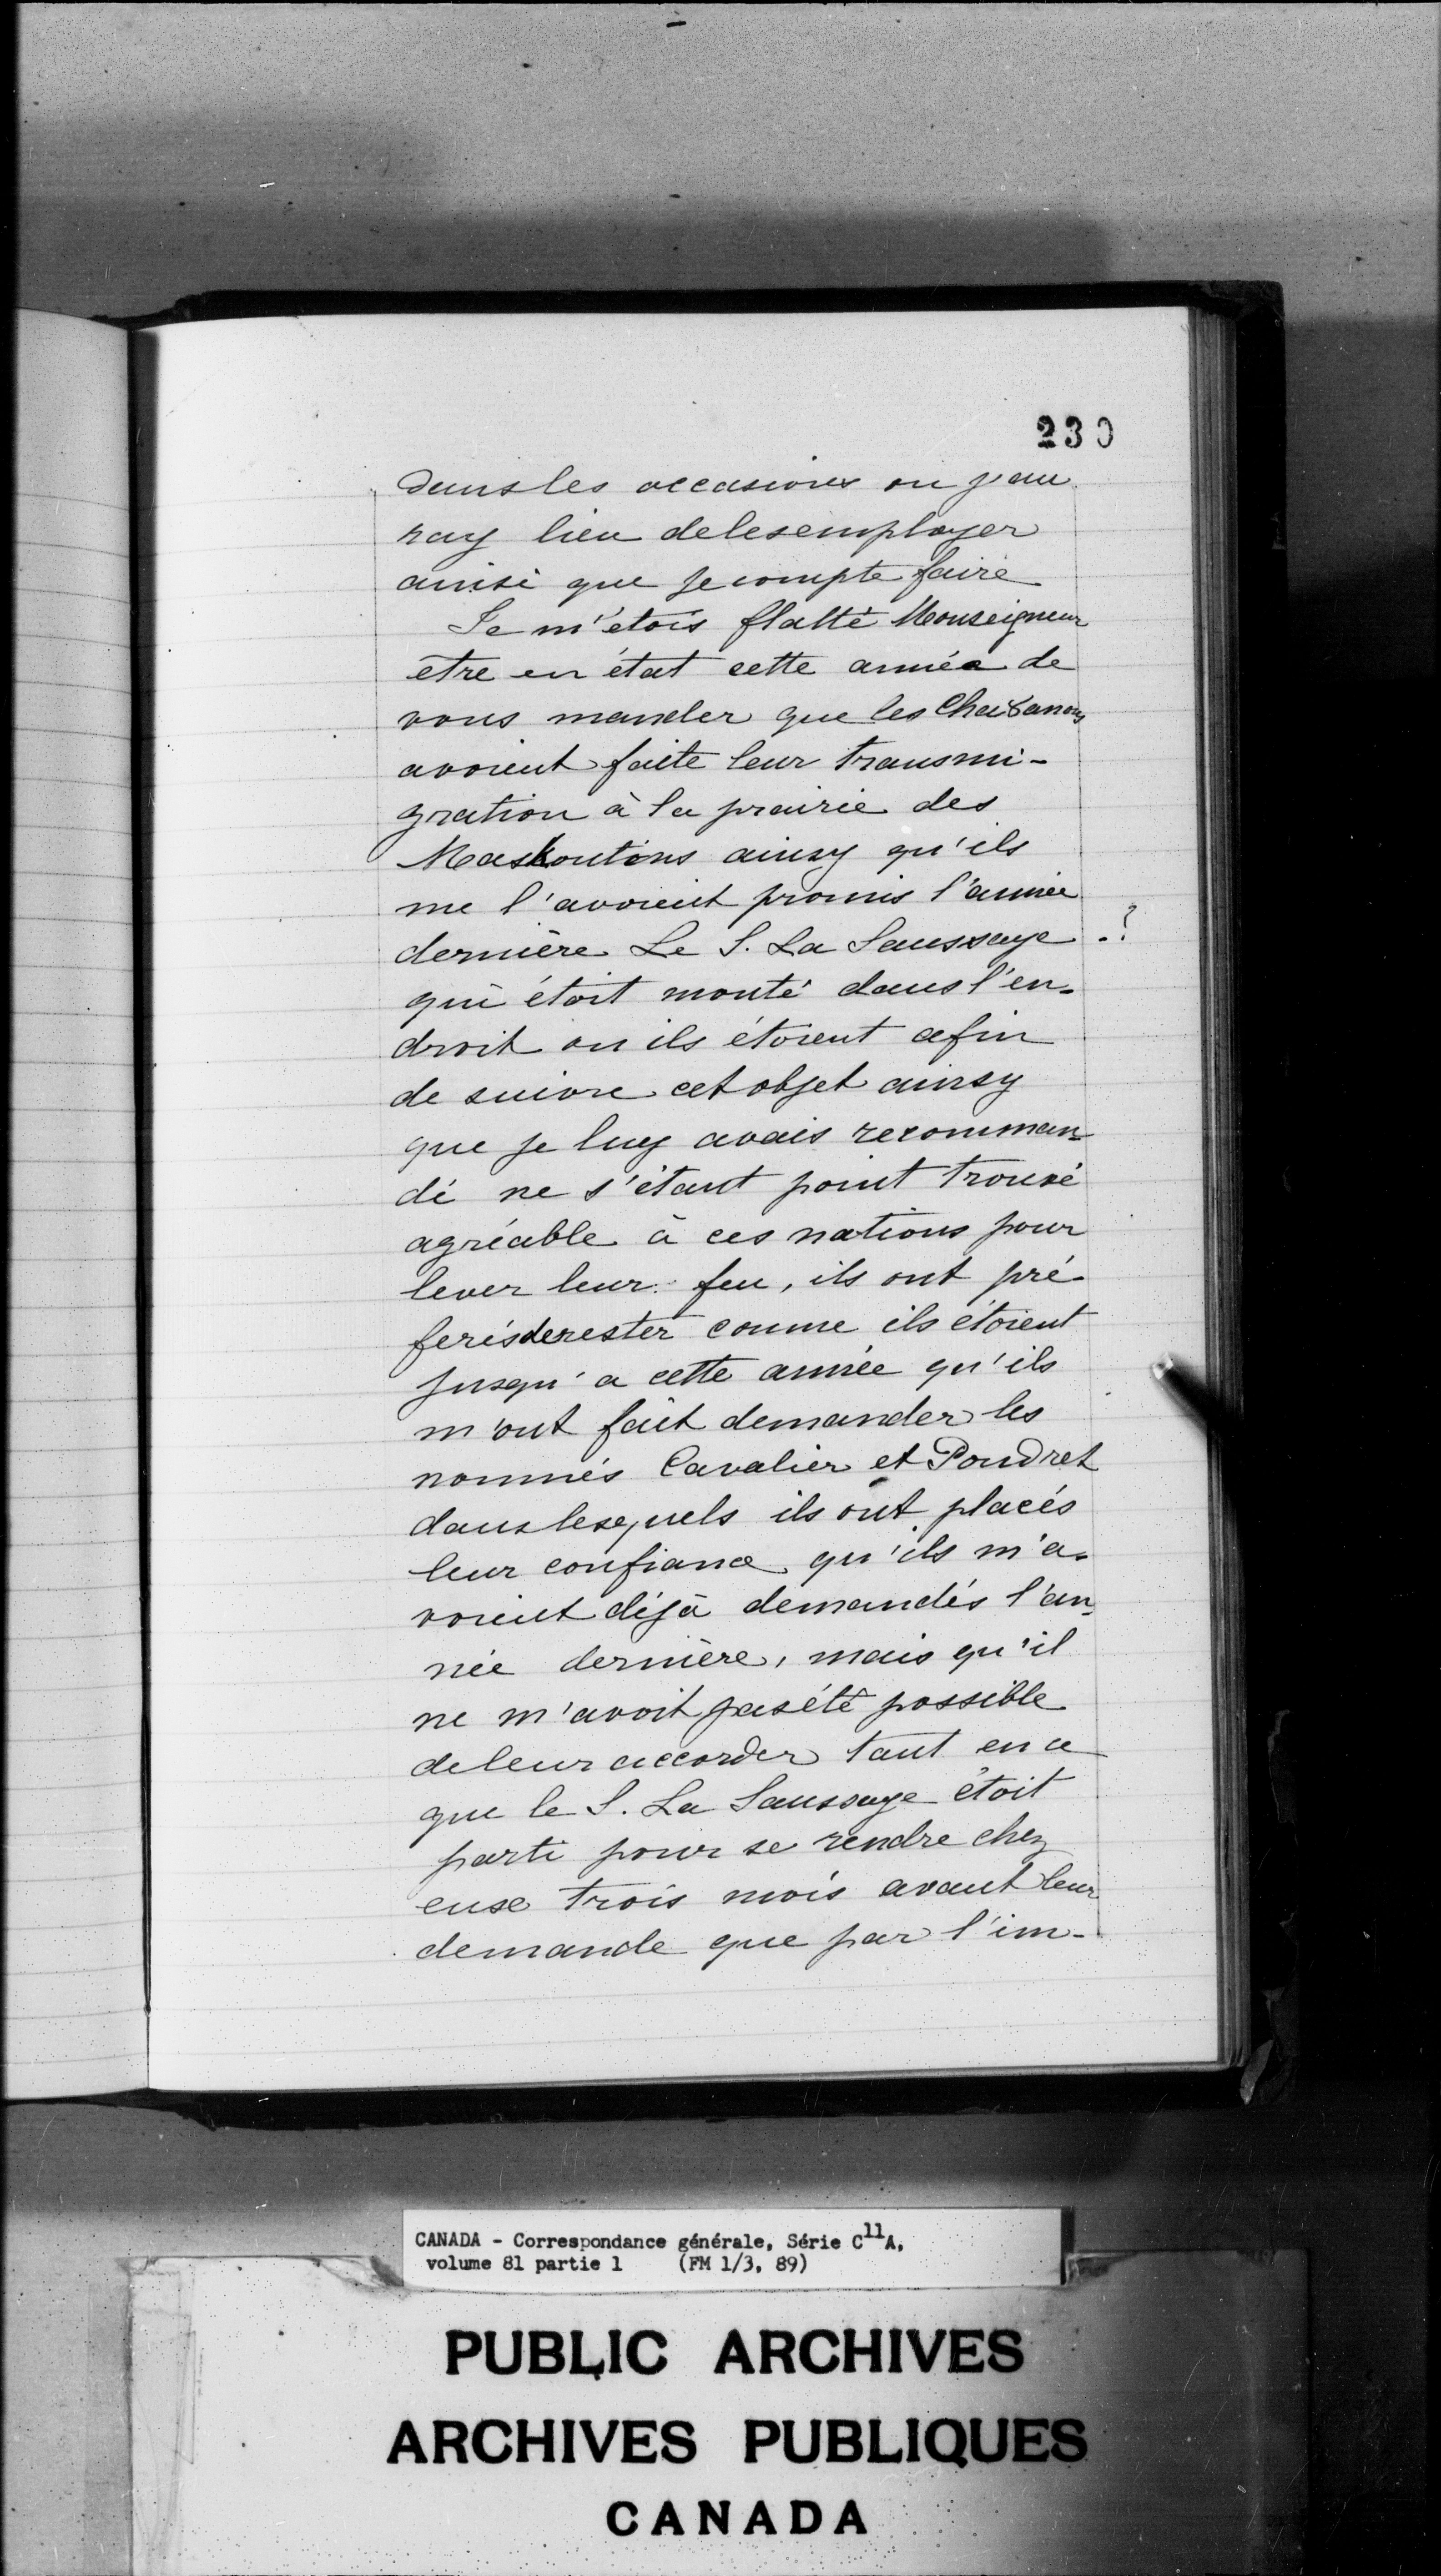 230
dans les occasions ou j'au
ray lieu de les employer
ainsi que je compte faire
Je m'étois flatté Monseigneur
être en état cette année de
vous mander que les Cha8anons
avoient faite leur transmi-
gration à la prairie des
Maskoutins ainsy qu'ils
me l'avoient promis l'année
dernière Le S. La Saussaye .?
qui étoit monté dans l'en-
droit ou ils étoient afin
de suivre cet objet ainsy
que je luy avais recomman-
dé ne s'étant point trouvé
agréable à ces nations pour
lever leur feu, ils ont pré-
ferés de rester comme ils étoient
jusqu'a cette année qu'ils
m'ont fait demander les
nommés Cavalier et Poudret
dans lesquels ils ont placés
leur confiance qu'ils m'a-
voient déjà demandés l'an-
née dernière, mais qu'il
ne m'avoit pas été possible
de leur accorder tant en ce
que le S. La Saussaye étoit
parti pour se rendre chez
eux trois mois avant leur
demande que par l'im-
CANADA - Correspondance générale, Série C11A,
volume 81 partie 1 (FM 1/3, 89)
PUBLIC ARCHIVES
ARCHIVES PUBLIQUES
CANADA